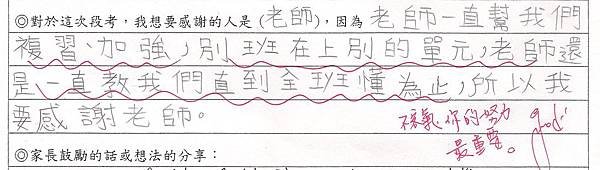 ◎對於這次段考，我想要感謝的人是(老師)，因為老師一直幫我們
複習、加強，別班在上別的單元，老師還
是一直教我們直到全班懂為止，所以我
要感謝老師。
不客氣，你的努力
最重要。good!
◎家長鼓勵的話或想法的分享：